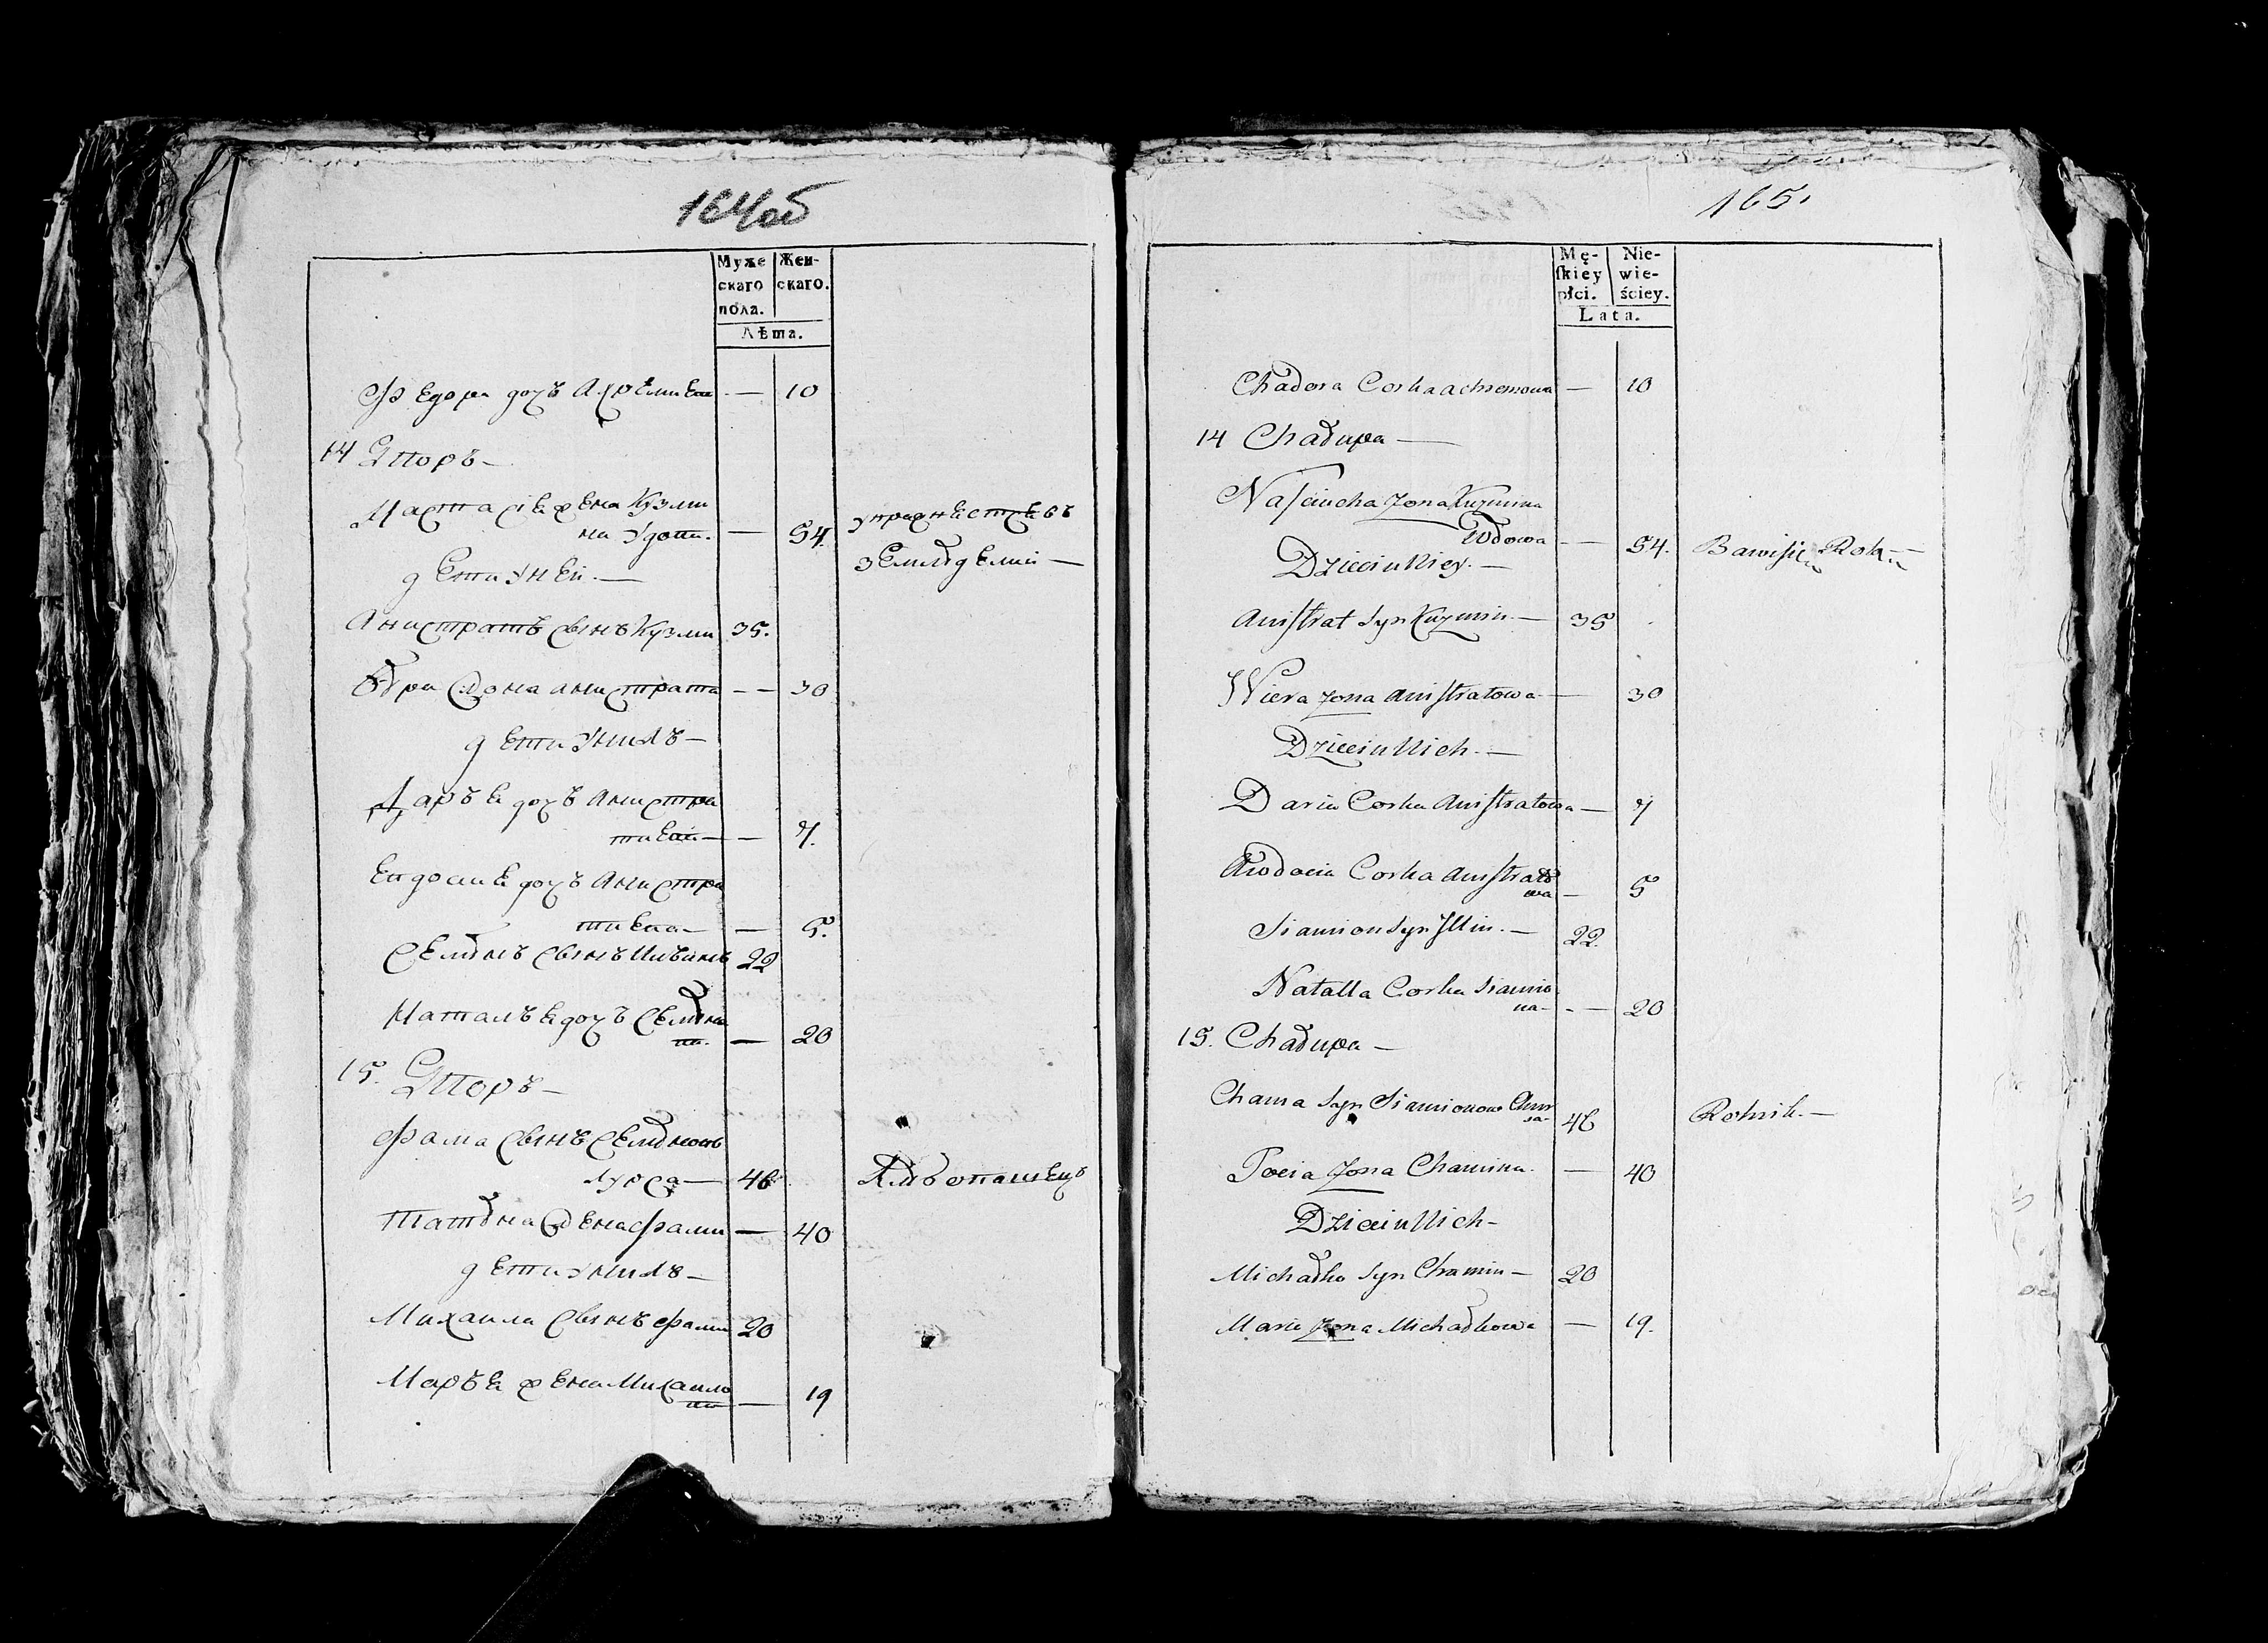 164об
Муже
скаго
пола.
Жен-
скаго.
Лѣта.
Федора дочъ Ахремиева — 10
14 Двторъ —
Настасія жена Кузми
на удова. — 54. упражняется въ
дети у ней. — земледелии —
Анистратъ сынъ Кузми 35.
жона анистрата — — 30
дети у нихъ —
Даръя дочъ Анистра
това — — 7.
Евдосия дочъ Анистра
това — — 5.
Семёнъ сынъ 22
Наталъя дочъ Семёна
— 20
15. Двторъ —
Фама сынъ Семёновъ
— 46
Татяна жена Фами — 40
дети у нихъ —
Михаила сынъ Фами 20
Маръя жена Михаило
ва — 19
165.
Mę-
skiey
płci.
Nie-
wie-
ściey.
Lata.
Chadora Corka achremowa — 10
14 Chałupa —
Nasciucha Zona Kuzmina
Wdowa — 54. Bawi się Rolą —
Dzieci u Niey. —
Anistrat Syn Kuzmin — 35
Wiera Zona Anistratowa — 30
Dzieci u Nich. —
Daria Corka Anistratowa — 7
Awdocia Corka Anistrato
wa — 5
Siamion Syn Illin. — 22.
Natalla Corka Siamio
na — - — 20
15. Chałupa —
Chama Syn Siamionow
46 Rolnik. —
Tocia Zona Chamina. — 40
Dzieci u Nich —
Michałko Syn Chamin — 20
Maria Zona Michałkowa — 19.